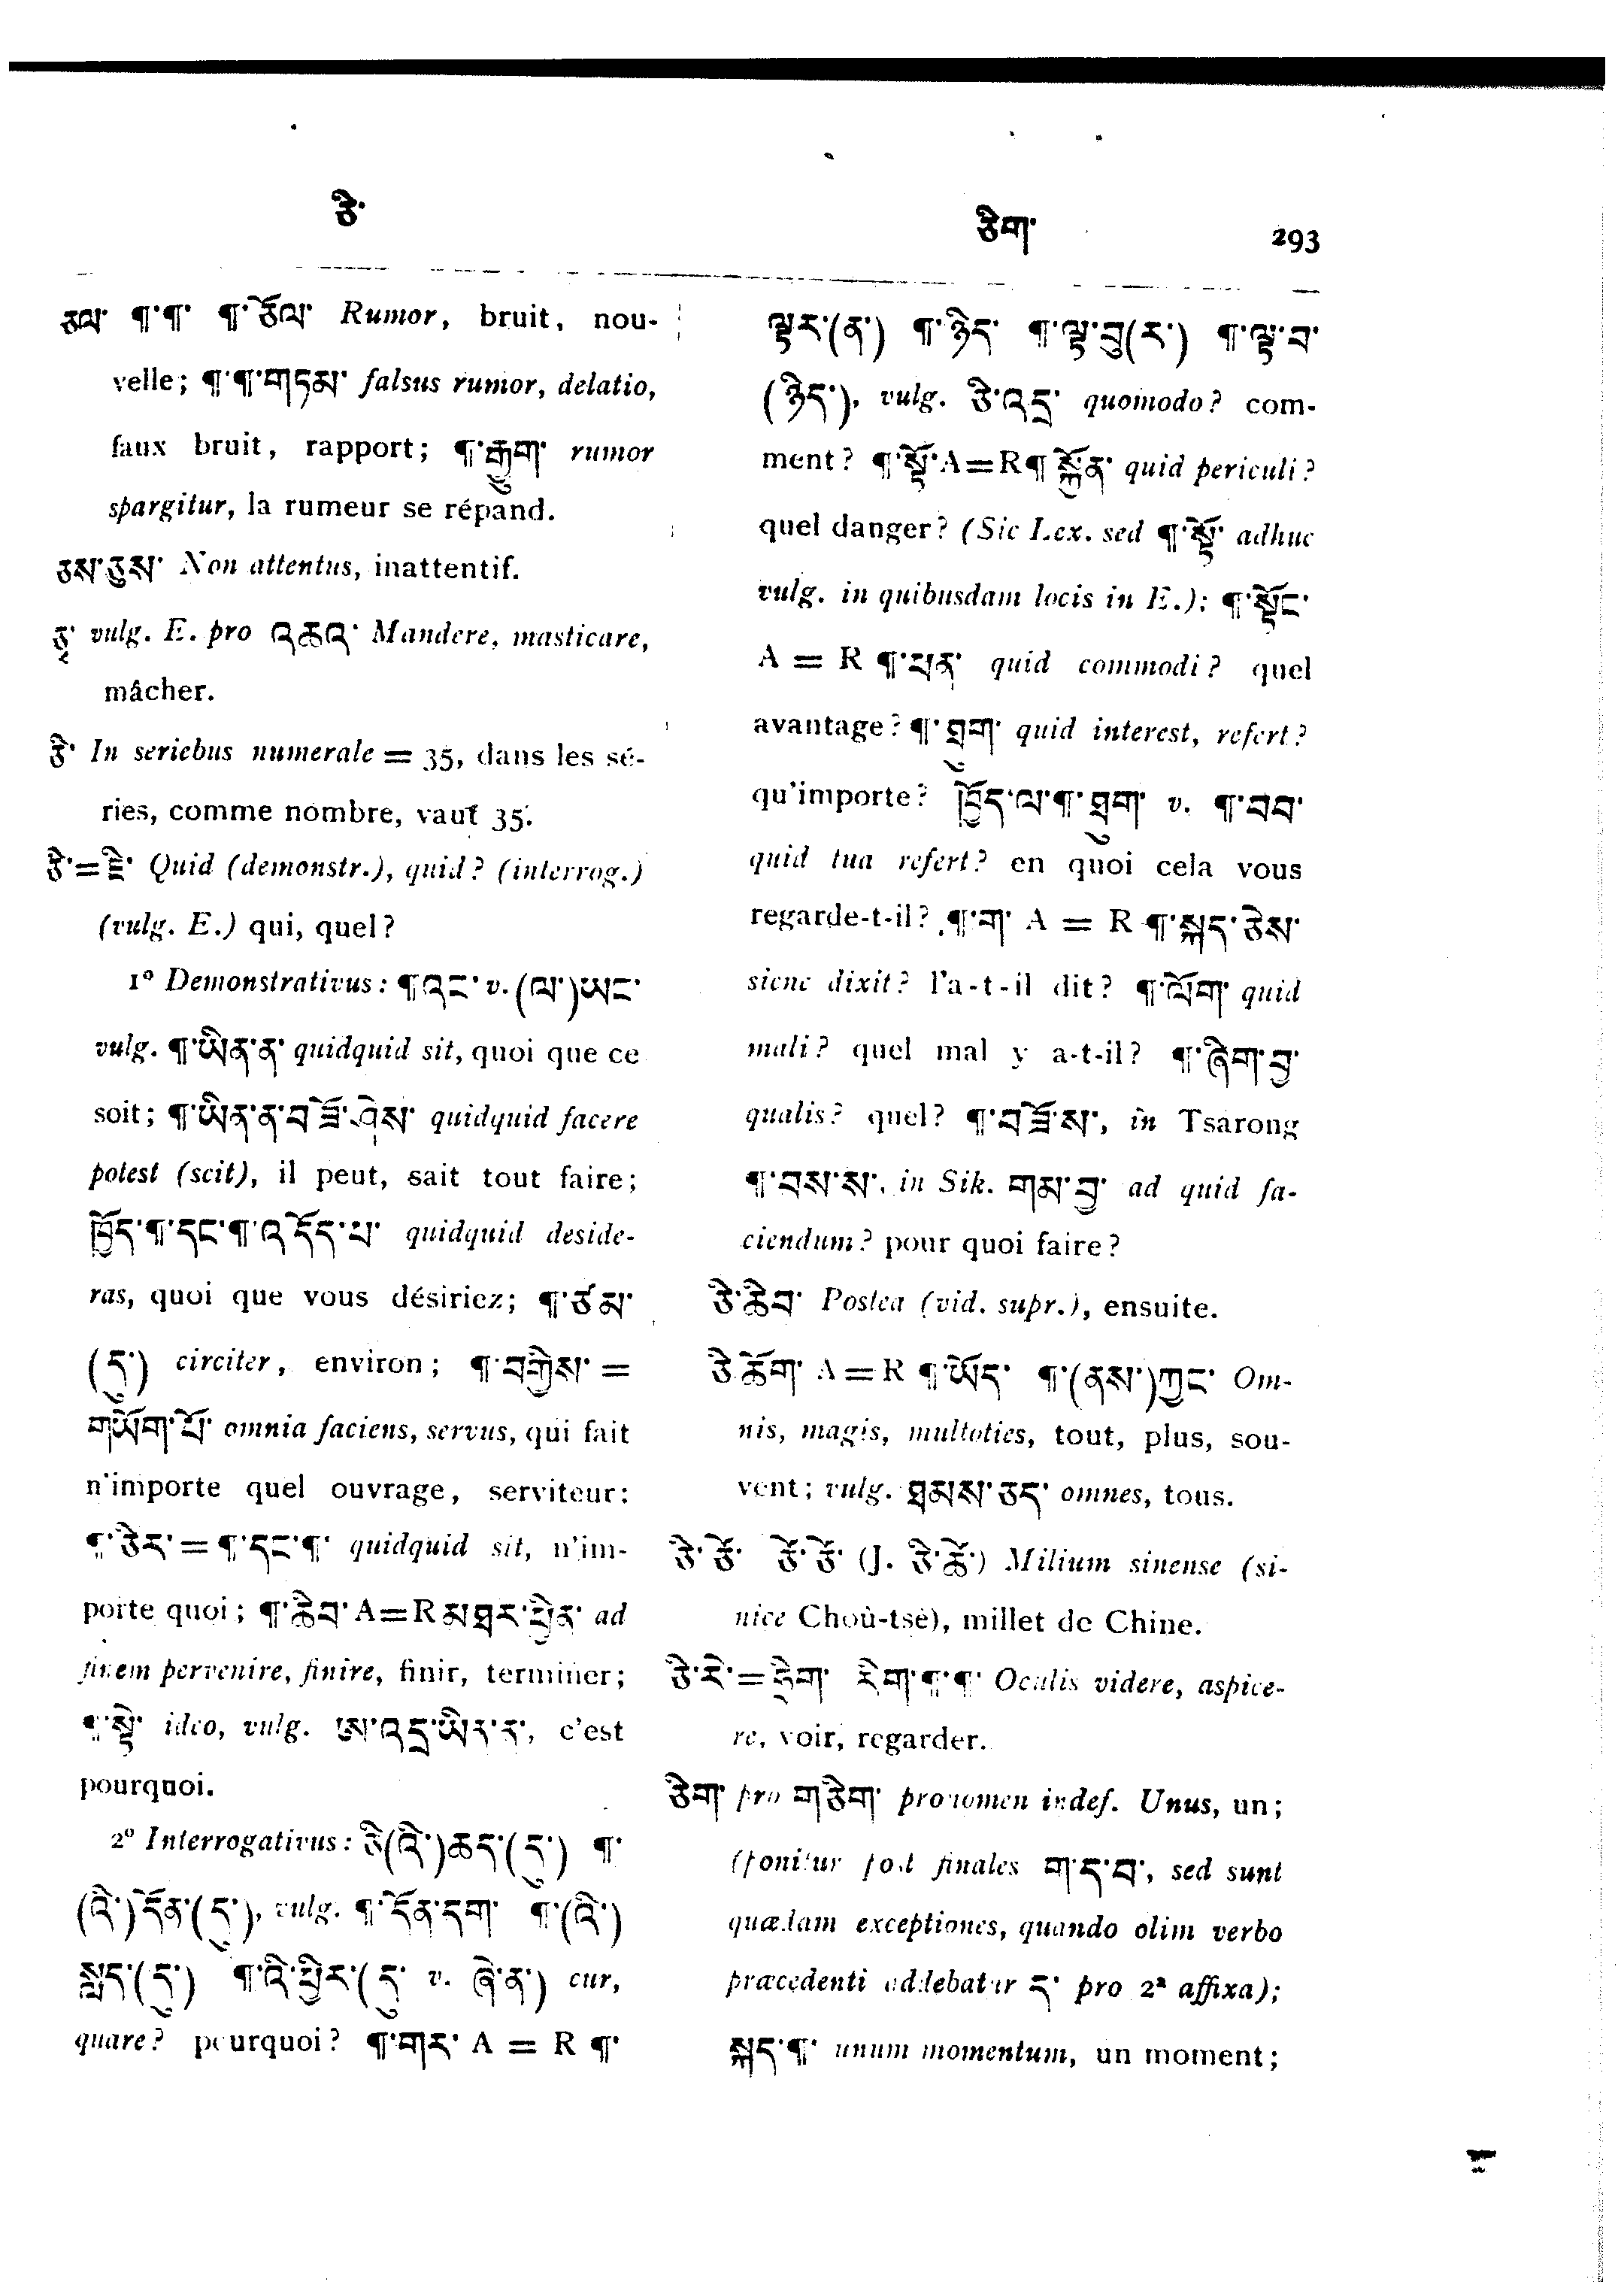 ཅེ་
ཅིག་ 293
ཅལ་ ¶་¶་ ¶་ཅོལ་ Rumor, bruit, nou-
velle; ¶་¶་གཏམ་ falsus rumor, delatio,
faux bruit, rapport; ¶་རྒྱུག་ rumor
spargitur, la rumeur se répand.
ཅས་ཅུས་ Non attentus, inattentif.
vulg. E. pro འཆའ་ Mandere, masticare,
mâcher.
ཅི་ In seriebus numerale = 35, dans les sé-
ries, comme nombre, vaut 35.
ཅི་=ཇི་ Quid (demonstr.), quid? (interrog.)
(vulg. E.) qui, quel?
1º Demonstrativus: ¶འང་ v. (ལ་)ཡང་
vulg. ¶་ཡིན་ན་ quidquid sit, quoi que ce
soit; ¶་ཡིན་ན་བཟོ་ཤེས་ quidquid facere
potest (scit), il peut, sait tout faire;
ཁྱོད་¶་དང་¶་འདོད་པ་ quidquid deside-
ras, quoi que vous désiriez; ¶་ཙམ་
(དུ་) circiter, environ; ¶་བགྱིས་ =
གཡོག་པོ་ omnia faciens, servus, qui fait
n'importe quel ouvrage, serviteur;
¶་ཅེར་=¶་དང་¶་ quidquid sit, n'im-
porte quoi; ¶་ཆེབ་ A=R མཐར་ཕྱིན་ ad
finem pervenire, finire, finir, terminer;
¶་སྟེ་ ideo, vulg. ཨ་འདྲ་ཡིར་ར་, c'est
pourquoi.
2º Interrogativus: ཅི(འི་)ཆད་(དུ་) ¶་
(འི་)དོན་(དུ་), vulg. ¶་དོན་དག་ ¶་(འི་)
སླད་(དུ་) ¶་འི་ཕྱིར་(དུ་ v. ཞེ་ན་) cur,
quare? pourquoi? ¶་གར་ A = R ¶་
ལྟར་(ན་) ¶་ཉིད་ ¶་ལྟ་བུ(ར་) ¶་ལྟ་བ་
(ཉིད་), vulg. ཅི་འདྲ་ quomodo? com-
ment? ¶་སྟོ་A=R¶སྐྱོན་ quid periculi?
quel danger? (Sic Lex. sed ¶་སྟོ་ adhuc
vulg. in quibusdam locis in E.); ¶་སྟོང་
A = R ¶་ཕན་ quid commodi? quel
avantage? ¶་ཐུག་ quid interest, refert?
qu'importe? ཁྱོད་ལ་¶་ཐུག་ v. ¶་བབ་
quid tua refert? en quoi cela vous
regarde-t-il? ¶་ག་ A = R ¶་སྐད་ཅེས་
sicne dixit? l'a-t-il dit? ¶་ལོག་ quid
mali? quel mal y a-t-il? ¶་ཞིག་བྱ་
qualis? quel? ¶་བཟོ་ས་, in Tsarong
¶་བས་ས་, in Sik. གམ་བྱ་ ad quid fa-
ciendum? pour quoi faire?
ཅི་ཆེབ་ Postea (vid. supr.), ensuite.
ཅི་ཆོག་ A=R ¶་ཡོད་ ¶་(ནས་)ཀྱང་ Om-
nis, magis, multoties, tout, plus, sou-
vent; vulg. ཐམས་ཅད་ omnes, tous.
ཅི་ཅོ་ ཅོ་ཅོ་ (J. ཅི་ཆོ་) Milium sinense (si-
nice Choù-tsè), millet de Chine.
ཅི་རེ་=ཧྲིག་ རིག་¶་¶་ Oculis videre, aspice-
re, voir, regarder.
ཅིག་ pro གཅིག་ pronomen indef. Unus, un;
(ponitur post finales ག་ད་བ་, sed sunt
quædam exceptiones, quando olim verbo
præcedenti addebatur ད་ pro 2ª affixa);
སྐད་¶་ unum momentum, un moment;